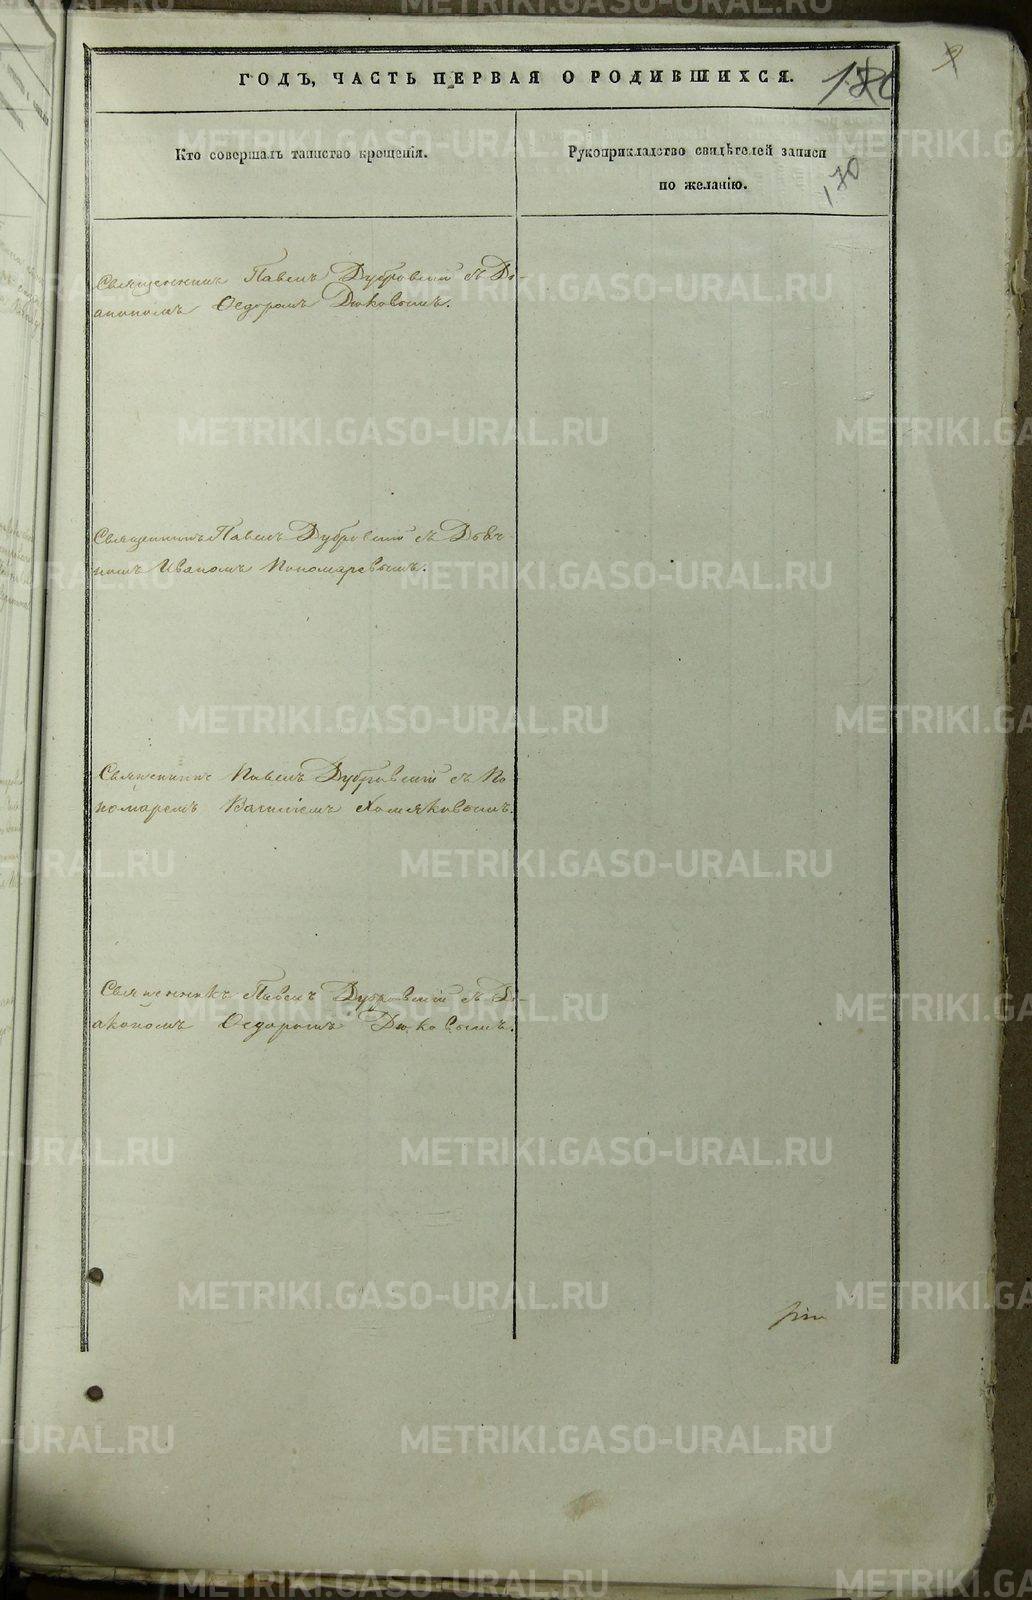 ГОДЪ, ЧАСТЬ ПЕРВАЯ О РОДИВШИХСЯ.
170
Кто совершалъ таинство крещенія.
Рукоприкладство свидѣтелей записи
по желанію.
Священникъ Павелъ Дубровскій съ Ді-
акономъ Ѳедоромъ Дюковымъ.
Священникъ Павелъ Дубровскій съ Дьяч-
комъ Иваномъ Пономаревымъ.
Священникъ Павелъ Дубровскій съ По-
номаремъ Василіемъ Хомяковымъ.
Священникъ Павелъ Дубровскій съ Ді-
акономъ Ѳедоромъ Дюковымъ.
METRIKI.GASO-URAL.RU